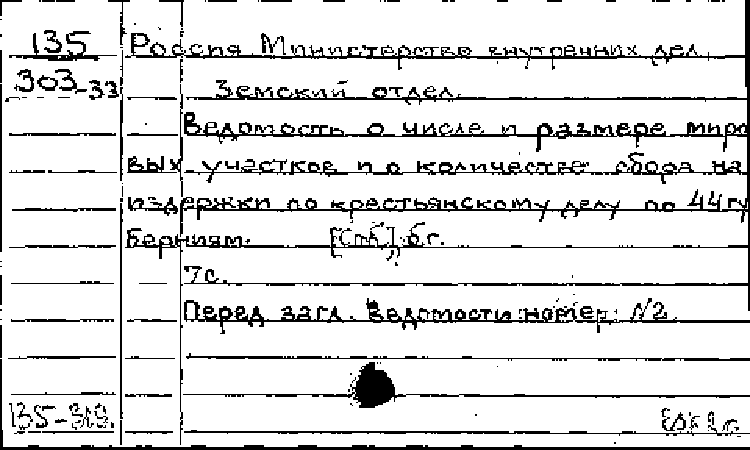 135 Россия Министерство внутренних дел.
303-33 Земский отдел.
Ведомость о числе и размере миро
вых участков и о количестве сбора на
издержки по крестьянскому делу по 44 гу
берниям. [Спб], б.г.
7с.
Перед загл. Ведомости номер: №2.
135-313.